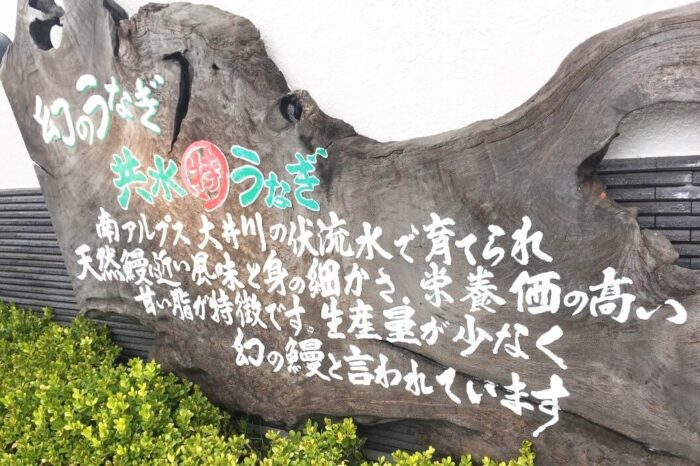 幻のうなぎ
共水特うなぎ
南アルプス大井川の伏流水で育てられ
天然鰻に近い風味と身の細かさ、栄養価の高い
甘い脂が特徴です。生産量が少なく
幻の鰻と言われています